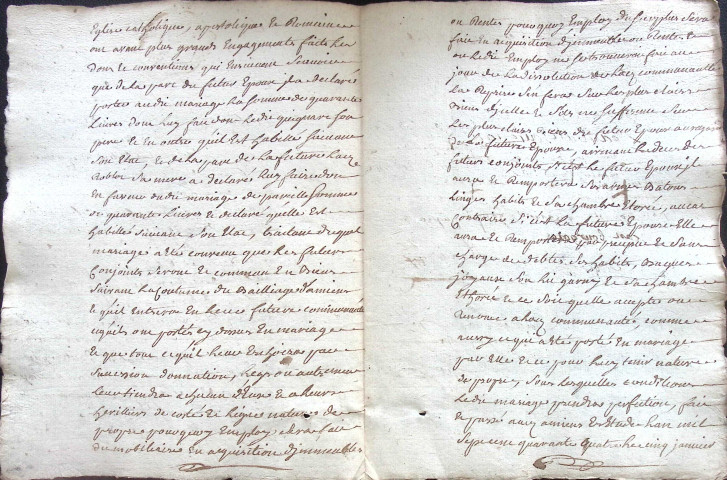 Eglise catholique, apostolique et Romaine
ont avant plus grands Engagements faits les
dons et conventions qui Ensuivent Scavoir
que de la part du futur Epoux il a declaré
porter au dit mariage la somme de quarante
Livres dont luy fait don ledit
pere et en outre qu'il Est habillé suivant
Son Etat, et de la part de la future
sa mere a declaré luy faire don
En faveur dudit mariage de pareille Somme
de quarante Livres et declare quelle Est
habillée suivant Son Etat, traitant duquel
mariage a été convenu que les futurs
Conjoints seront et commeun En Biens
suivant la Coutume du Bailliage d'amiens
et qu'il Entrera En leur future communauté
ce qu'ils ont porté cy dessus En mariage
et que tout ce qu'il leur Eschoera par
Succession donnation, legs ou autrement
leur tiendra à chacun d'Eux et a leurs
heritiers de cotté et ligne nature de
propre pourquoy Employ sera fait
du mobiliaire En acquisition d'jmmeubles
ou Rentes pourquoy Employ du surplus sera
fait En acquisition d'jmmeubles ou Rentes
ou ledit Employ ne se trouvera fait au
jour de la dissolution de lad. communauté
la Reprise s'en fera sur les plus clairs
Biens d'jcelle et S'ils ne suffisent sur
les plus clairs Biens du futur Epoux au regard
de la future Epouse, arrivant le deces des
futurs conjoints, Si c'est le futur Epoux jl
aura et Remportera Ses armes Batons
linges habits et sa chambre Etorée, au cas
Contraire Si c'est la future Epouse Elle
aura et Remportera par preciput et Sans
charge de debtes Ses habits, Bagues
joyaux Son lit garny et sa chambre
Ethorée et ce Soit quelle accepte ou
Renonce a lad. communauté, comme
aussy ce qui a été porté En mariage
par Elle et ce pour luy tenir nature
de propre, Sous lesquelles conditions
ledit mariage prendra perfection, fait
et passé aud. amiens En Etude l'an mil
Sept cent quarante quatre le cinq janvier